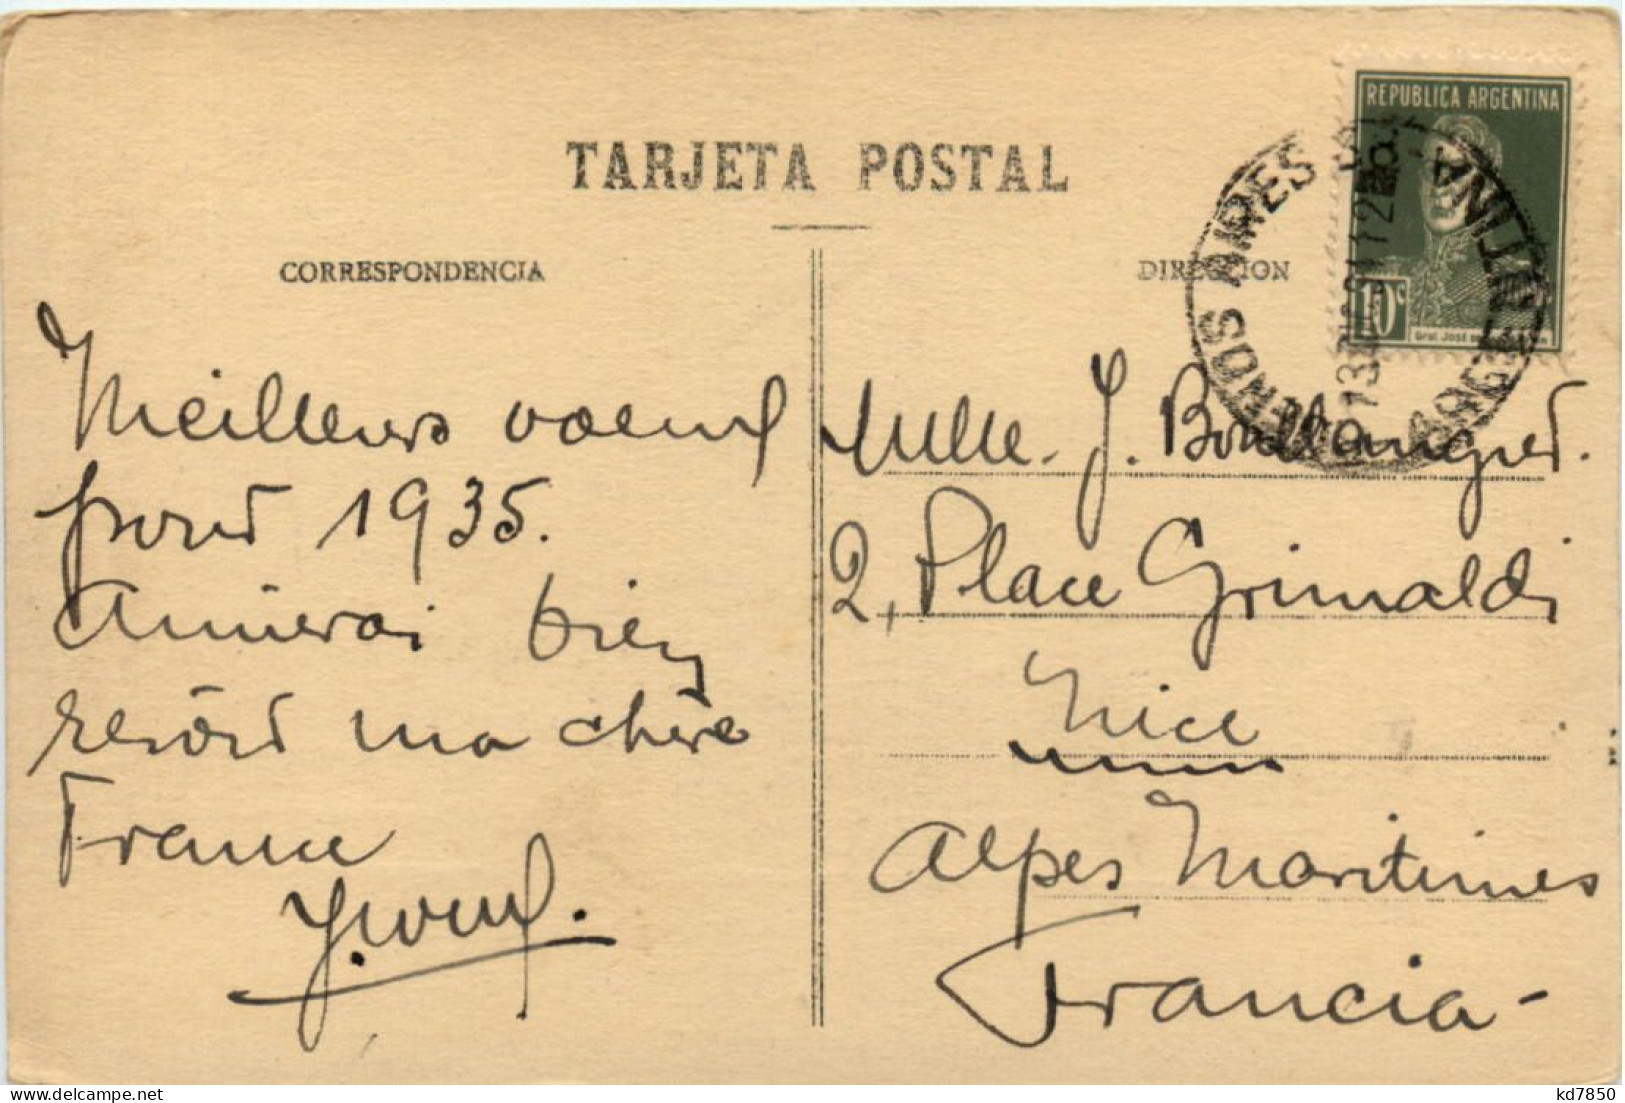 TARJETA POSTAL
CORRESPONDENCIA
DIRECCION
REPUBLICA ARGENTINA
10c
Gral. José
BUENOS AIRES
ARGENTINA
13
12
Meilleurs voeux
pour 1935.
Aimerai bien
revoir ma chère
France
Mlle. J. Boullangier.
2, Place Grimaldi
Nice
Alpes Maritimes
Francia -
kd7850